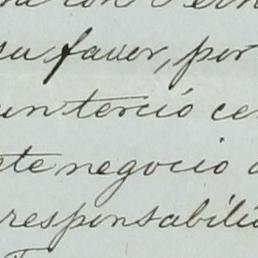 con
su favor, por
un terció
este negocio
responsabili